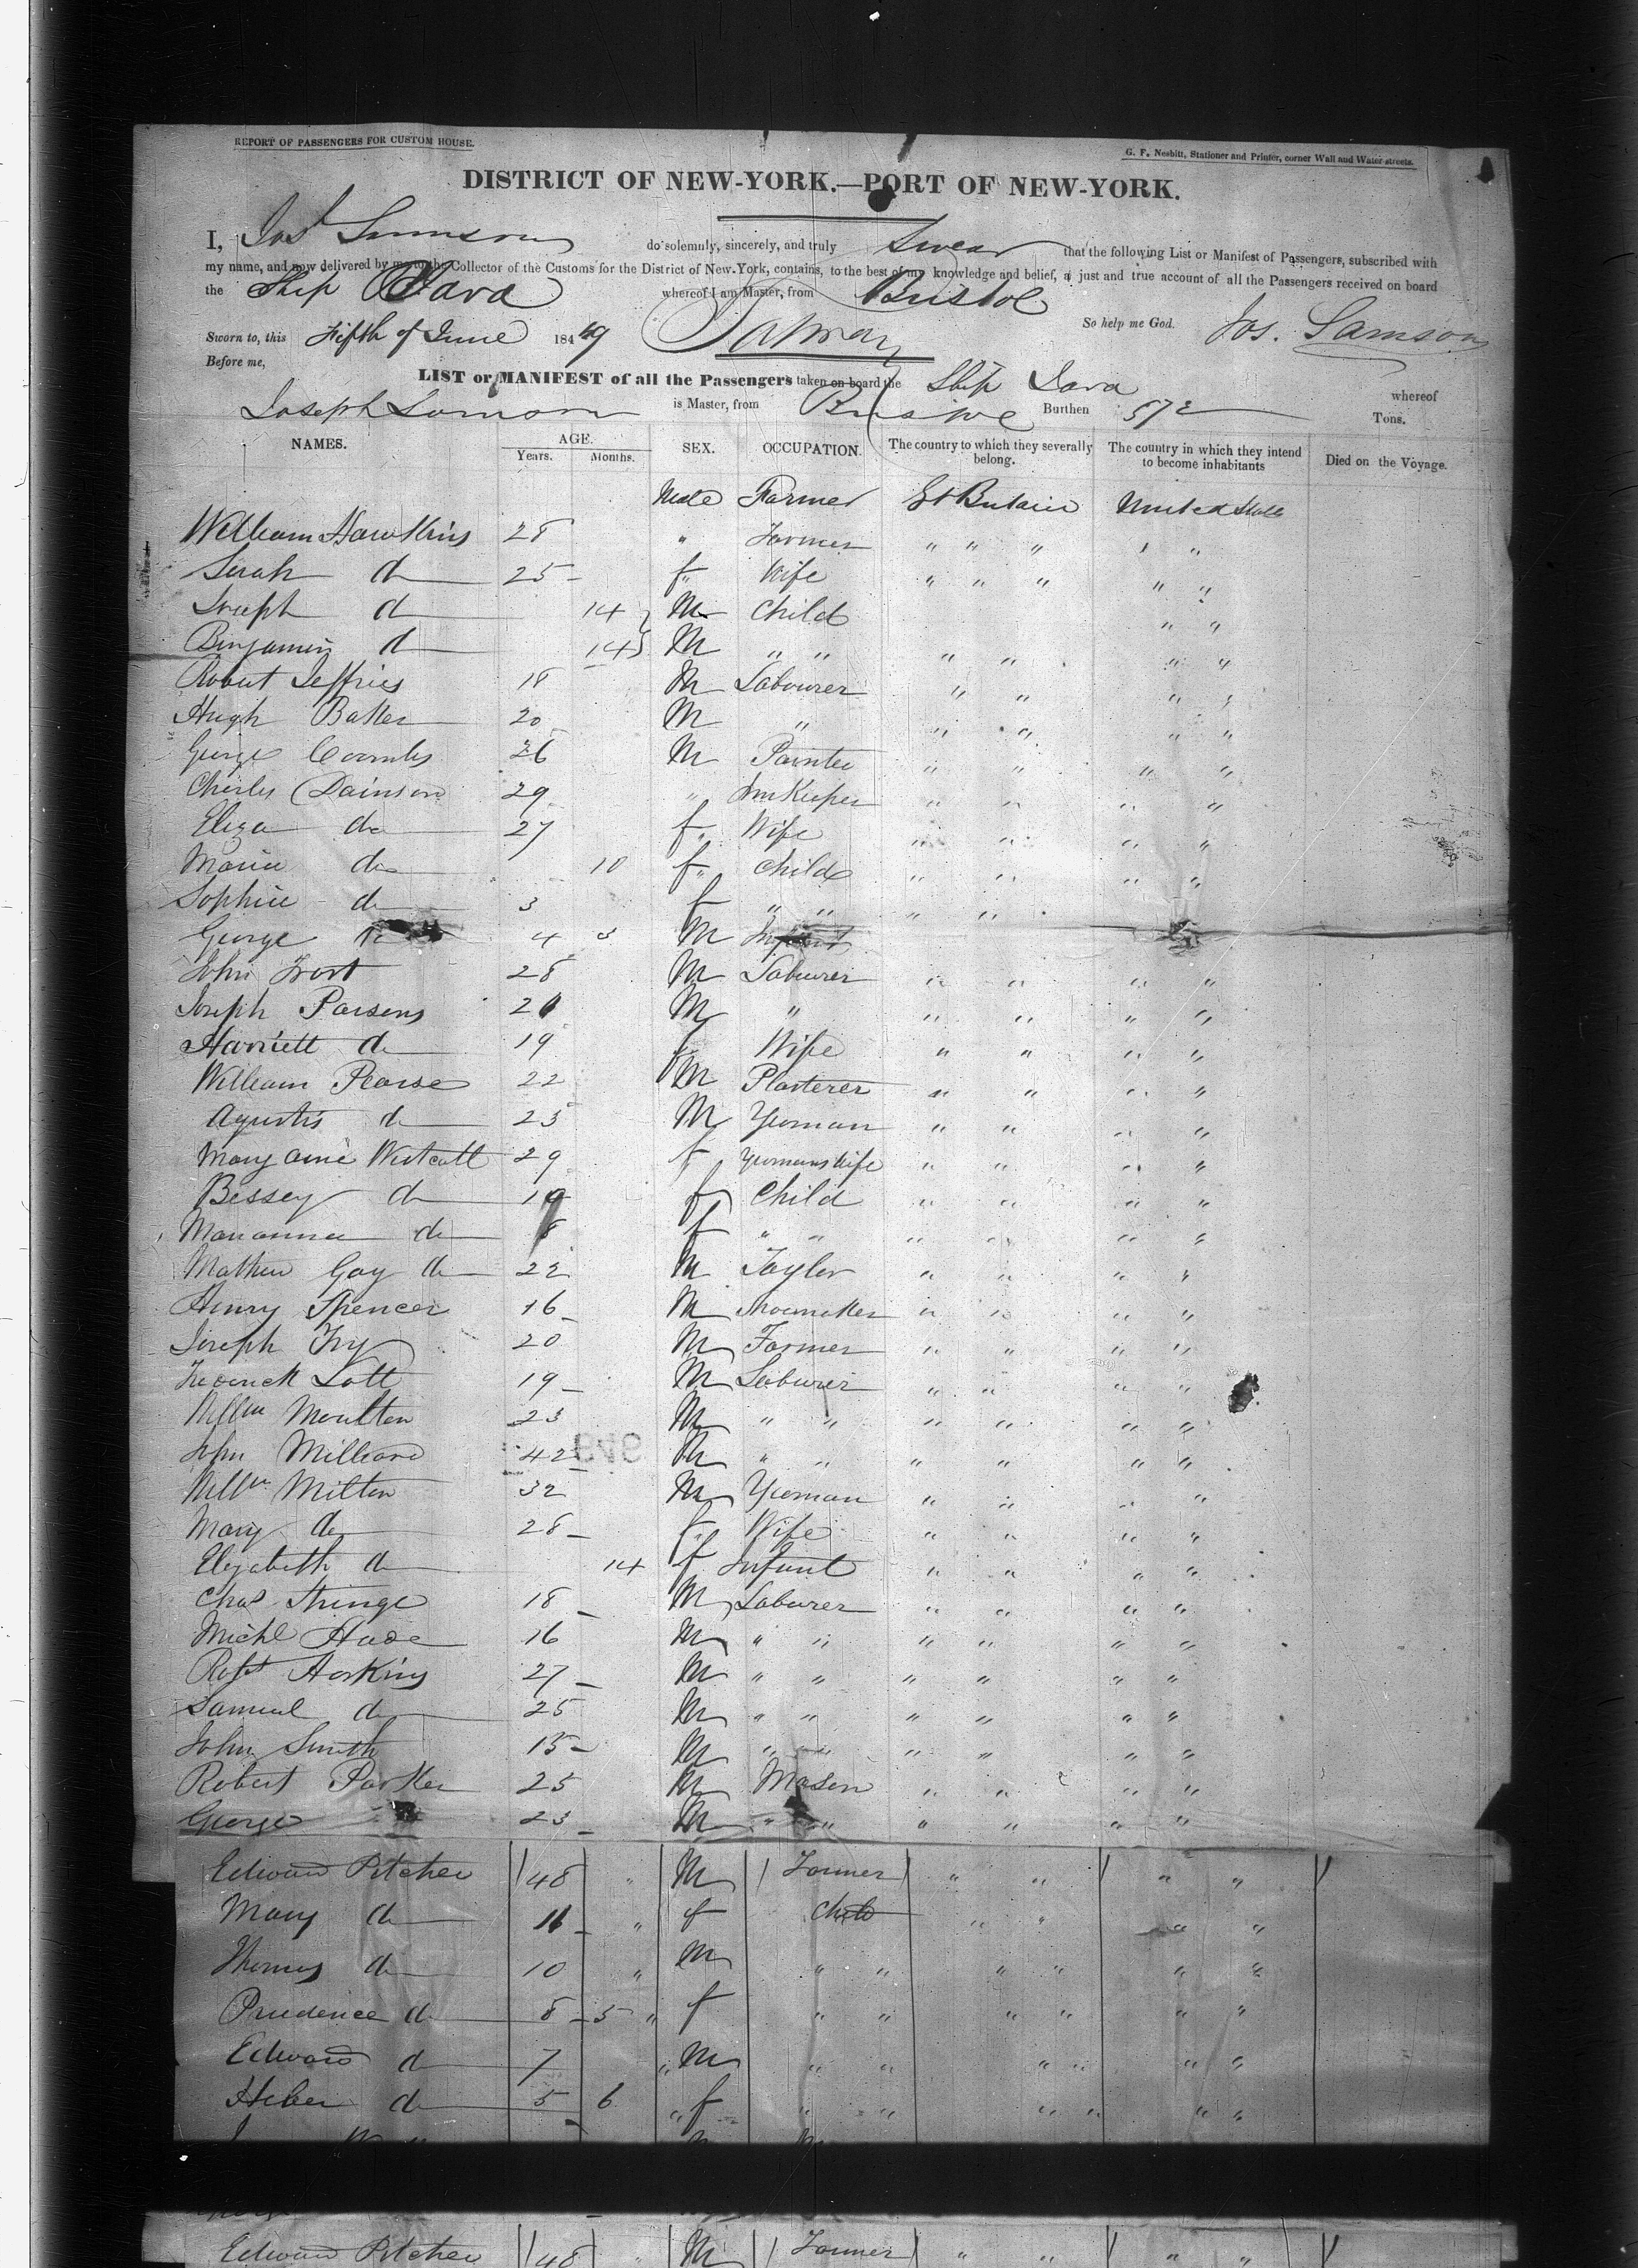 REPORT OF PASSENGERS FOR CUSTOM HOUSE.
G. F. Nesbitt, Stationer and Printer, corner Wall and Water streets.
DISTRICT OF NEW-YORK.—PORT OF NEW-YORK.
I, Jos Samson do solemnly, sincerely, and truly Swear that the following List or Manifest of Passengers, subscribed with
my name, and now delivered by me to the Collector of the Customs for the District of New-York, contains, to the best of my knowledge and belief, a just and true account of all the Passengers received on board
the Ship whereof I am Master, from Bristol
Sworn to, this Fifth of June 1849 So help me God. Jos. Samson
Before me,
LIST or MANIFEST of all the Passengers taken on board the Ship whereof
Joseph is Master, from Burthen 572 Tons.
NAMES. AGE. Years. Months. SEX. OCCUPATION. The country to which they severally belong. The country in which they intend to become inhabitants Died on the Voyage.
Male Farmer Gt Britain United States
William Hawkins 28 " Farmer " " " " "
Sarah do 25 f Wife " " " " "
Joseph do 14 M Child " "
Benjamin do 14 M " " " " " "
Robert Jeffries 18 M Labourer " " " "
Hugh Baker 20 M " " " " "
George Coombs 26 M Painter " " " "
Charles 29 " Innkeeper " " " "
Eliza do 27 f Wife " " " "
Maria do 10 f Child " " " "
Sophia do 3 f " " " "
George do 4 3 M Infant
John 28 M Laburer " " " "
Joseph Parsons 21 M " " " " "
Harriett do 19 f Wife " " " "
William Pearse 22 M Plasterer " " " "
do 25 M Yeoman " " " "
Mary Ann Westcott 29 f Yeomans Wife " " " "
Bessey do f Child " " " "
do 8 f " " " " " "
Mathew Gay do 22 M Taylor " " " "
Henry Spencer 16 M Shoemaker " " " "
Joseph Fry 20 M Farmer " " " "
Frederick Lott 19 M Laburer " " " "
Willm Moulton 23 M " " " " " "
John 42 M " " " " " "
Willm Milton 32 M Yeoman " " " "
Mary do 28 f Wife " " " "
Elizabeth do 14 f Infant " " " "
Chas 18 M Laburer " " " "
Michl 16 M " " " " " "
Robt Hoskins 27 M " " " " " "
Samuel do 25 M " " " " " "
John Smith 15 M " " " " " "
Robert Parker 25 M Mason " " " "
George 23 M " " " " " "
Edward Pitcher 48 " M Farmer " " " "
Mary do 11 " f Child " " " "
Thomas do 10 " M " " " " " "
Prudence do 8 5 " f " " " " " "
Edward do 7 " M " " " " " "
do 5 6 " f " " " " " "
Edward Pitcher 48 " M Farmer " " " "